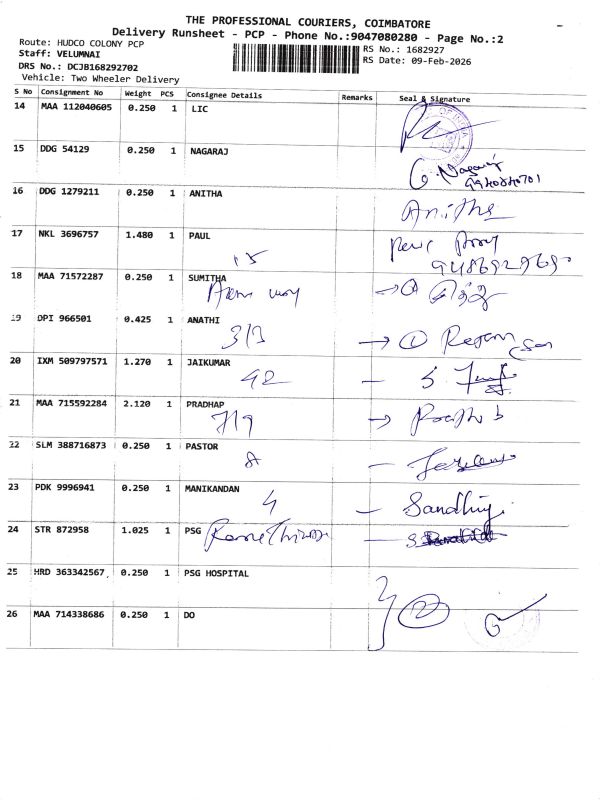 THE PROFESSIONAL COURIERS, COIMBATORE
Delivery Runsheet - PCP - Phone No.:9047080280 - Page No.:2
Route: HUDCO COLONY PCP
Staff: VELUMNAI
DRS No.: DCJB168292702
Vehicle: Two Wheeler Delivery
RS No.: 1682927
RS Date: 09-Feb-2026
S No Consignment No Weight PCS Consignee Details Remarks Seal & Signature
14 MAA 112040605 0.250 1 LIC
15 DDG 54129 0.250 1 NAGARAJ
G. Nagaraj
16 DDG 1279211 0.250 1 ANITHA
Anitha
17 NKL 3696757 1.480 1 PAUL
15
18 MAA 71572287 0.250 1 SUMITHA
19 DPI 966501 0.425 1 ANATHI
3/3
20 IXM 509797571 1.270 1 JAIKUMAR
42
21 MAA 715592284 2.120 1 PRADHAP
719
22 SLM 388716873 0.250 1 PASTOR
8
23 PDK 9996941 0.250 1 MANIKANDAN
4 Sandhiy
24 STR 872958 1.025 1 PSG
25 HRD 363342567 0.250 1 PSG HOSPITAL
26 MAA 714338686 0.250 1 DO
2